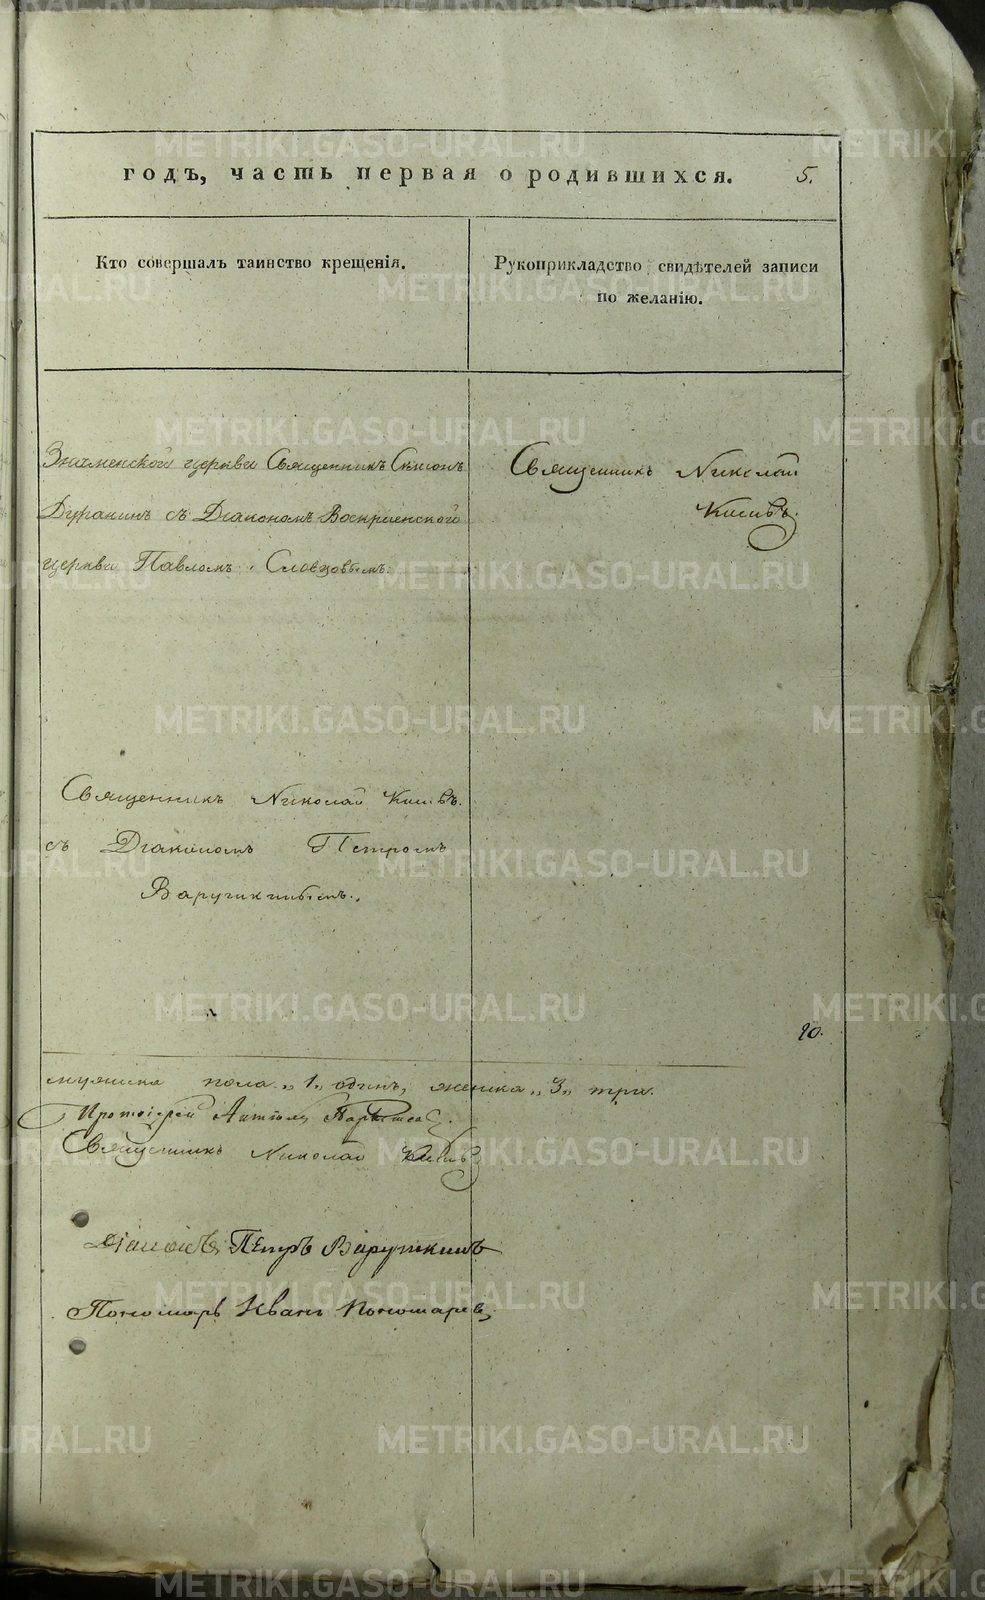 годъ, часть первая о родившихся. 5.
Кто совершалъ таинство крещенія.
Рукоприкладство свидѣтелей записи
по желанію.
Знаменской церкви Священникъ Симонъ
съ Діакономъ Воскресенской
церкви Павломъ Словцовымъ.
Священникъ Николай
Священникъ Николай
съ Діакономъ Петромъ
20.
мужеска пола „1„ одинъ, женска „3„ три.
Протоіерей
Священникъ Николай
Діаконъ Петръ Варушкинъ
Пономарь Иванъ Пономаревъ
METRIKI.GASO-URAL.RU